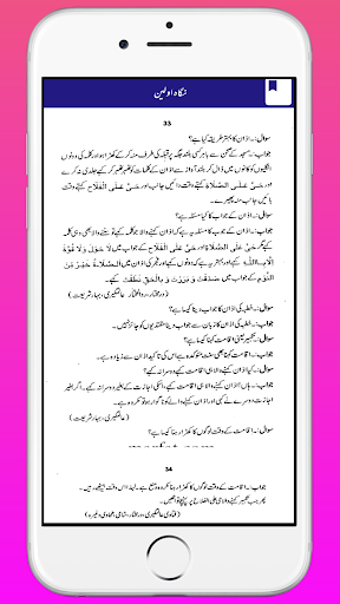 نگاہ اولین
33
سوال:۔ اذان کا بہتر طریقہ کیا ہے؟
جواب:۔ مسجد کے صحن سے باہر کسی بلند جگہ پر قبلہ کی طرف منہ کر کے کھڑا ہو اور کلمہ کی دونوں
انگلیوں کو کانوں میں ڈال کر بلند آواز سے اذان کے کلمات کو ٹھہر ٹھہر کر کہے جلدی نہ کرے
اور حَیَّ عَلَی الصَّلَاۃِ کہتے وقت دائیں جانب اور حَیَّ عَلَی الْفَلَاح کہتے وقت
بائیں جانب منہ پھیرے۔
سوال:۔ اذان کے جواب کا کیا مسئلہ ہے؟
جواب:۔ اذان کے جواب کا مسئلہ یہ ہے کہ اذان کہنے والا جو کلمہ کہے تو سننے والا بھی وہی کلمہ
کہے مگر حَیَّ عَلَی الصَّلَاۃِ اور حَیَّ عَلَی الْفَلَاح کے جواب میں لَا حَوْلَ وَلَا قُوَّۃَ
اِلَّا بِاللّٰہِ کہے اور بہتر یہ ہے کہ دونوں کہے اور فجر کی اذان میں اَلصَّلَاۃُ خَیْرٌ مِّنَ
النَّوْمِ کے جواب میں صَدَقْتَ وَ بَرَرْتَ وَ بِالْحَقِّ نَطَقْتَ کہے۔
(درمختار، ردالمحتار، عالمگیری، بہار شریعت)
سوال:۔ خطبہ کی اذان کا جواب دینا کیسا ہے؟
جواب:۔ خطبہ کی اذان کا زبان سے جواب دینا مقتدیوں کو جائز نہیں۔
سوال:۔ تکبیر یعنی اقامت کہنا کیسا ہے؟
جواب:۔ اقامت کہنا بھی سنت مؤکدہ ہے اس کی تاکید اذان سے زیادہ ہے۔
سوال:۔ کیا اذان کہنے والا ہی اقامت کہے دوسرا نہ کہے؟
جواب:۔ ہاں! اذان کہنے والا ہی اقامت کہے، اسکی اجازت کے بغیر دوسرا نہ کہے۔ اگر بغیر
اجازت دوسرے نے کہی اور اذان کہنے والے کو ناگوار ہو تو مکروہ ہے۔
(عالمگیری، بہار شریعت)
سوال:۔ اقامت کے وقت لوگوں کا کھڑا رہنا کیسا ہے؟
34
جواب:۔ اقامت کے وقت لوگوں کا کھڑا رہنا مکروہ و منع ہے۔ لہٰذا اس وقت بیٹھے رہیں۔
پھر جب تکبیر کہنے والا حی علی الفلاح پر پہنچے تو اٹھیں۔
(فتاوی عالمگیری، درمختار، شامی، طحطاوی وغیرہ)